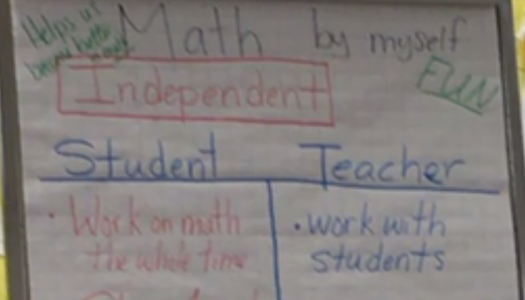 Helps us
become better
Math by myself
FUN
Independent
Student Teacher
• Work on math
the whole time
• work with
students